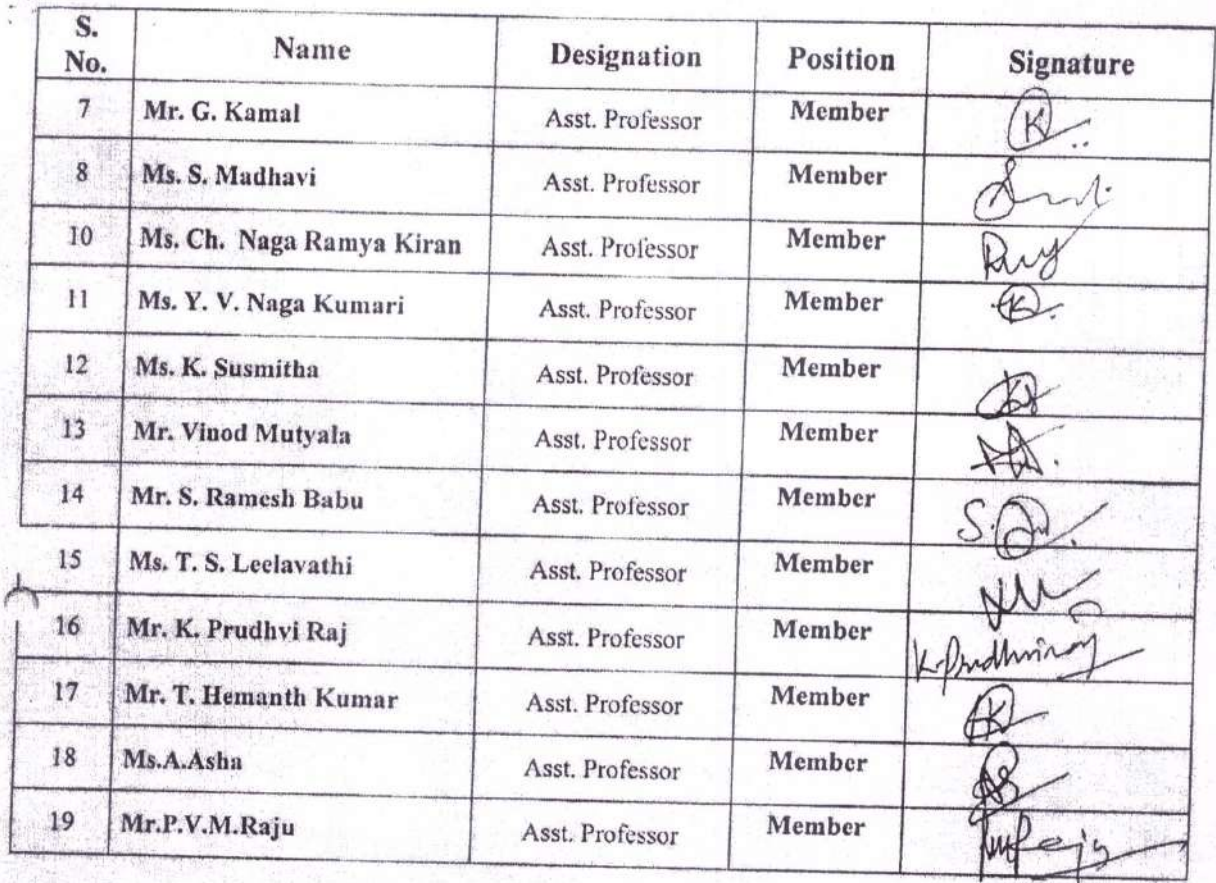 S. No. Name Designation Position Signature
7 Mr. G. Kamal Asst. Professor Member K
8 Ms. S. Madhavi Asst. Professor Member
10 Ms. Ch. Naga Ramya Kiran Asst. Professor Member
11 Ms. Y. V. Naga Kumari Asst. Professor Member K
12 Ms. K. Susmitha Asst. Professor Member
13 Mr. Vinod Mutyala Asst. Professor Member
14 Mr. S. Ramesh Babu Asst. Professor Member S.
15 Ms. T. S. Leelavathi Asst. Professor Member
16 Mr. K. Prudhvi Raj Asst. Professor Member K. Prudhviraj
17 Mr. T. Hemanth Kumar Asst. Professor Member
18 Ms.A.Asha Asst. Professor Member
19 Mr.P.V.M.Raju Asst. Professor Member